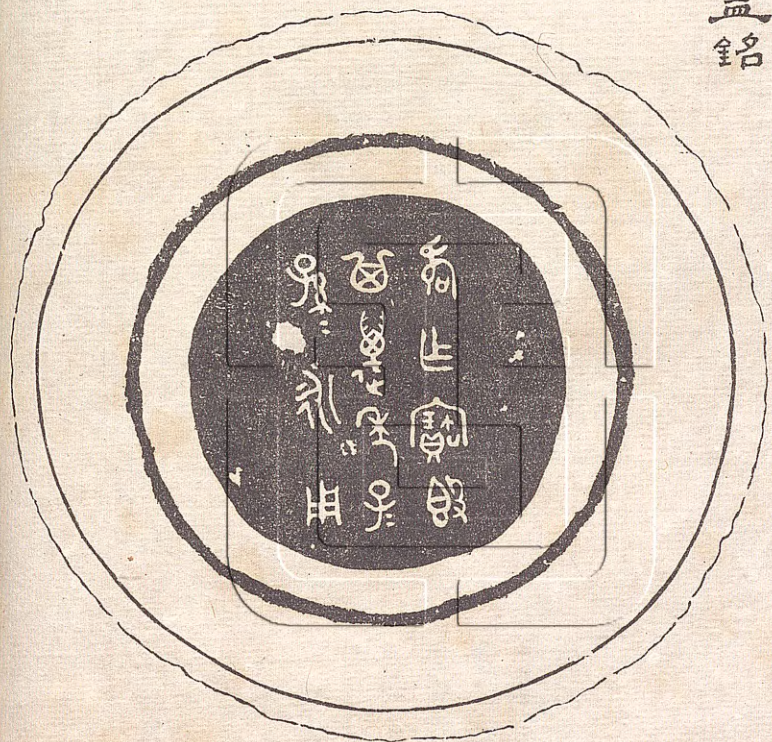 蓋銘
乍寶𣪘
其萬年子=
孫=永用